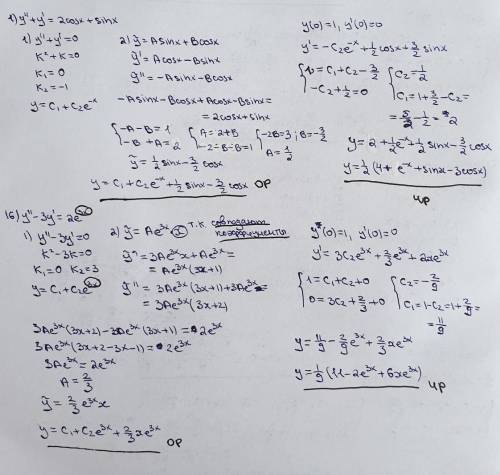 1) y''+y'=2cosx+sinx
1) y''+y'=0
K²+K=0
K₁=0
K₂=-1
y=C₁+C₂e⁻ˣ
2) ỹ=Asinx+Bcosx
ỹ'=Acosx-Bsinx
ỹ''=-Asinx-Bcosx
-Asinx-Bcosx+Acosx-Bsinx=
=2cosx+sinx
{-A-B=1
-B+A=2
{A=2+B
-2-B-B=1
{-2B=3; B=-3/2
A=1/2
ỹ=1/2 sinx-3/2 cosx
y=C₁+C₂e⁻ˣ+1/2 sinx-3/2 cosx ОР
y(0)=1, y'(0)=0
y'=-C₂e⁻ˣ+1/2 cosx+3/2 sinx
{1=C₁+C₂-3/2
-C₂+1/2=0
{C₂=1/2
C₁=1+3/2-C₂=
=5/2-1/2=2
y=2+1/2 e⁻ˣ+1/2 sinx-3/2 cosx
y=1/2(4+e⁻ˣ+sinx-3cosx)
ЧР
16) y''-3y'=2e³ˣ
1) y''-3y'=0
K²-3K=0
K₁=0 K₂=3
y=C₁+C₂e³ˣ
2) ỹ=Ae³ˣx т.к. совпадают
коэффициенты
ỹ'=3Ae³ˣx+Ae³ˣ=
=Ae³ˣ(3x+1)
ỹ''=3Ae³ˣ(3x+1)+3Ae³ˣ=
=3Ae³ˣ(3x+2)
3Ae³ˣ(3x+2)-3Ae³ˣ(3x+1)=2e³ˣ
3Ae³ˣ(3x+2-3x-1)=2e³ˣ
3Ae³ˣ=2e³ˣ
A=2/3
ỹ=2/3 e³ˣx
y=C₁+C₂e³ˣ+2/3 xe³ˣ
ОР
y(0)=1, y'(0)=0
y'=3C₂e³ˣ+2/3 e³ˣ+2xe³ˣ
{1=C₁+C₂+0
0=3C₂+2/3+0
{C₂=-2/9
C₁=1-C₂=1+2/9=
=11/9
y=11/9-2/9 e³ˣ+2/3 xe³ˣ
y=1/9(11-2e³ˣ+6xe³ˣ)
ЧР